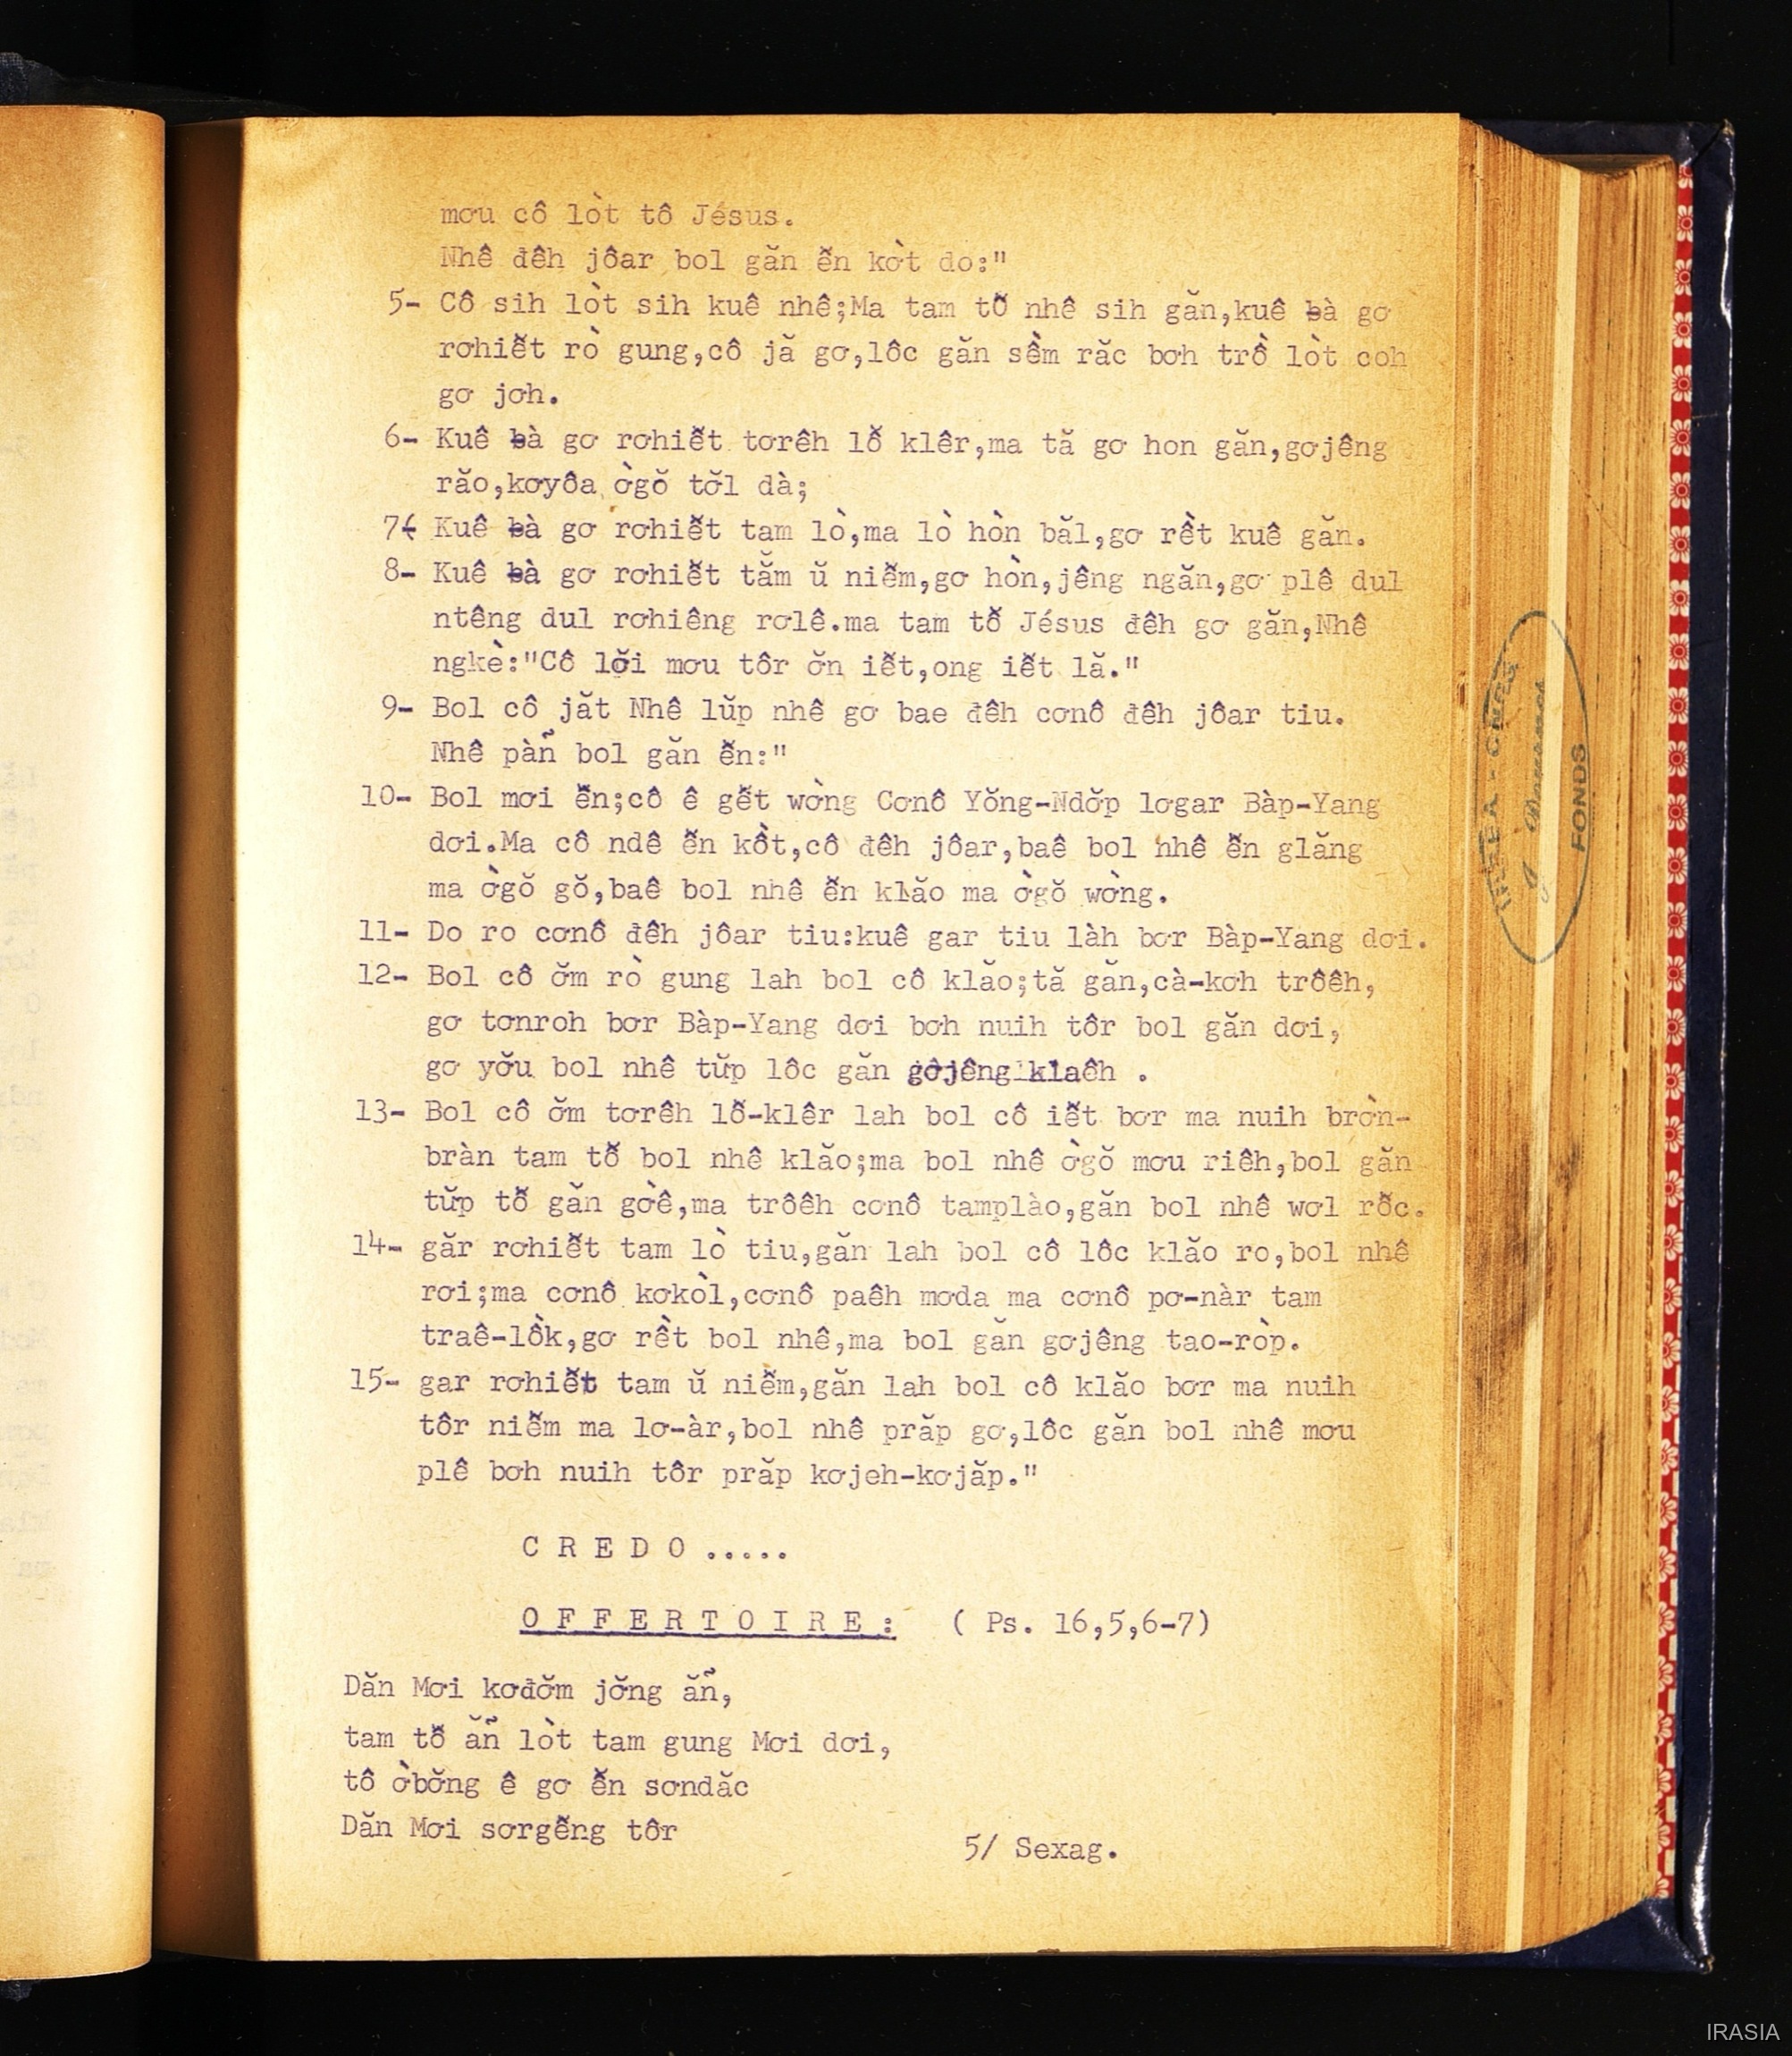 mơu cô lòt tô Jésus.
Nhê đêh jôar bol găn ê̆n kờt do:"
5- Cô sih lòt sih kuê nhê;Ma tam tô̆ nhê sih găn,kuê bà gơ
rơhiê̆t rò gung,cô jă gơ,lôc găn sềm răc bơh trồ lòt coh
gơ jơh.
6- Kuê bà gơ rơhiê̆t tơrêh lô̆ klêr,ma tă gơ hon găn,gơjêng
răo,kơyôa ờgŏ tơ̆l dà;
7- Kuê bà gơ rơhiê̆t tam lò,ma lò hòn băl,gơ rềt kuê găn.
8- Kuê bà gơ rơhiê̆t tăm ŭ niê̆m,gơ hòn,jêng ngăn,gơ plê dul
ntêng dul rơhiêng rơlê.ma tam tô̆ Jésus đêh gơ găn,Nhê
ngkè:"Cô lơ̆i mơu tôr ơ̆n iê̆t,ong iê̆t lă."
9- Bol cô jăt Nhê lŭp nhê gơ bae đêh cơnô đêh jôar tiu.
Nhê pàñ bol găn ê̆n:"
10- Bol mơi ê̆n;cô ê gê̆t wờng Cơnô Yŏng-Ndơ̆p lơgar Bàp-Yang
dơi.Ma cô ndê ê̆n kồt,cô đêh jôar,baê bol nhê ê̆n glăng
ma ờgŏ gŏ,baê bol nhê ê̆n klăo ma ờgŏ wờng.
11- Do ro cơnô đêh jôar tiu:kuê gar tiu làh bơr Bàp-Yang dơi.
12- Bol cô ơ̆m rò gung lah bol cô klăo;tă găn,cà-kơh trôêh,
gơ tơnroh bơr Bàp-Yang dơi bơh nuih tôr bol găn dơi,
gơ yơ̆u bol nhê tư̆p lôc găn gơjêng klaêh .
13- Bol cô ơ̆m tơrêh lô̆-klêr lah bol cô iê̆t bơr ma nuih brờn-
bràn tam tô̆ bol nhê klăo;ma bol nhê ờgŏ mơu riêh,bol găn
tư̆p tô̆ găn gờê,ma trôêh cơnô tamplào,găn bol nhê wơl rô̆c.
14- găr rơhiê̆t tam lò tiu,găn lah bol cô lôc klăo ro,bol nhê
rơi;ma cơnô kơkòl,cơnô paêh mơda ma cơnô pơ-nàr tam
traê-lồk,gơ rềt bol nhê,ma bol găn gơjêng tao-ròp.
15- gar rơhiê̆t tam ŭ niê̆m,găn lah bol cô klăo bơr ma nuih
tôr niê̆m ma lơ-àr,bol nhê prăp gơ,lôc găn bol nhê mơu
plê bơh nuih tôr prăp kơjeh-kơjăp."
C R E D O .....
O F F E R T O I R E : ( Ps. 16,5,6-7)
Dăn Mơi kơđơ̆m jơ̆ng ăñ,
tam tô̆ ăñ lòt tam gung Mơi dơi,
tô ờbơ̆ng ê gơ ê̆n sơndăc
Dăn Mơi sơrgê̆ng tôr
5/ Sexag.
FONDS
IRASIA